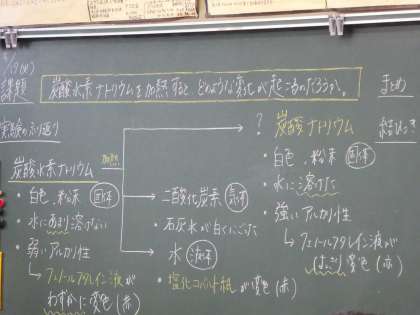 課題
炭酸水素ナトリウムを加熱すると どのような変化が起こるのだろうか。
まとめ
実験のふり返り
結びつき
炭酸水素ナトリウム
加熱
・白色、粉末 固体
・水にあまり溶けない
・弱いアルカリ性
フェノールフタレイン液が
わずかに変色(赤)
・二酸化炭素 気体
・石灰水が白くにごった
・水 液体
・塩化コバルト紙が変色(赤)
? 炭酸ナトリウム
・白色、粉末 固体
・水に溶けた
・強いアルカリ性
フェノールフタレイン液が
変色(赤)